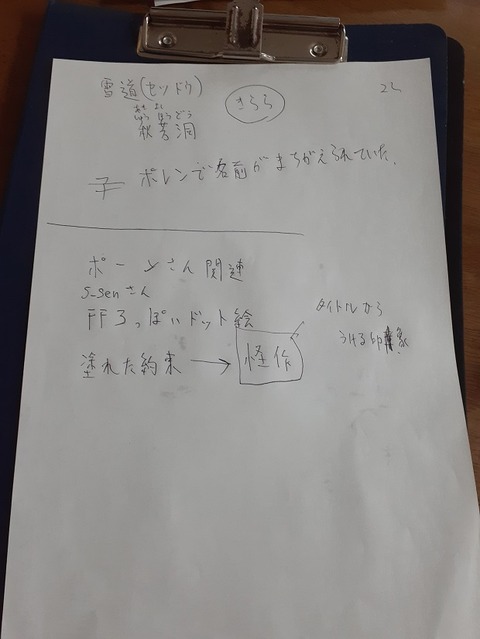 雪道(セツドウ)
きらら
あき よし
しゅう ほう どう
秋芳洞
ポレンで名前がまちがえられていた。
ポーンさん関連
S-senさん
FF3っぽいドット絵
タイトルから
うける印象
塗れた約束 → 怪作